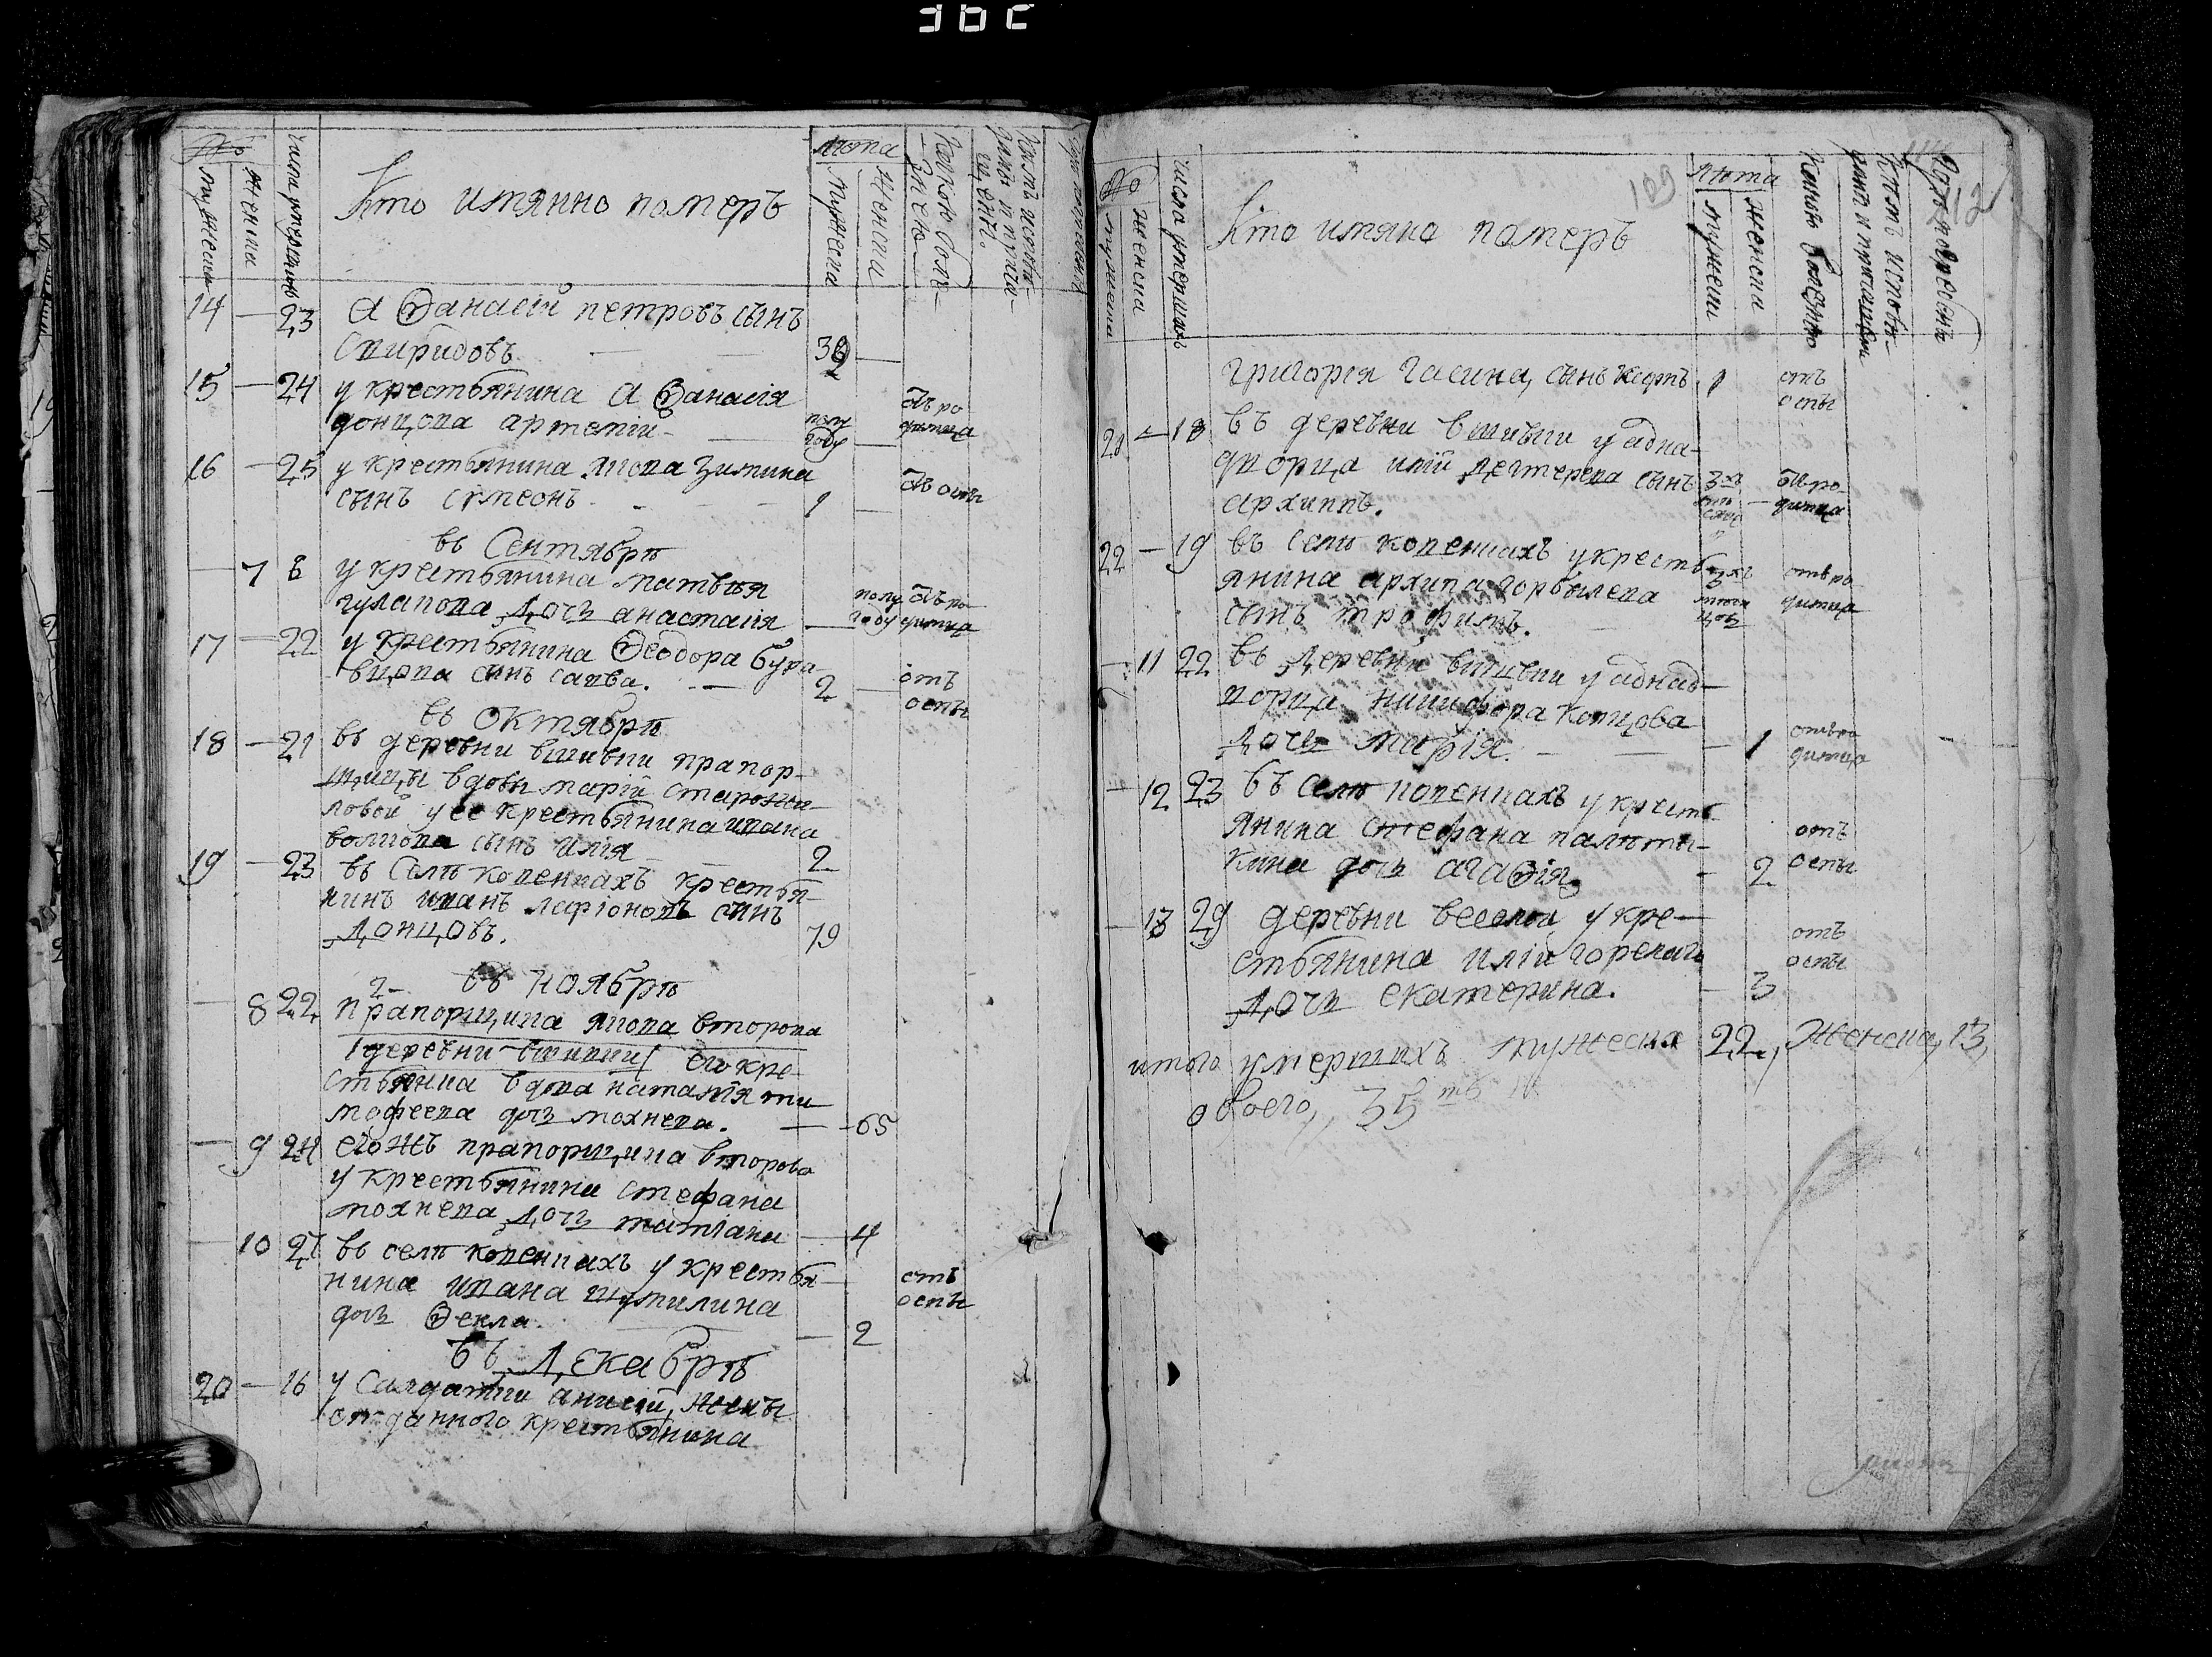 №
мужеска
женска
числа умершихъ
Кто имянно померъ
лѣта
мужеска
женска
Какою болѣ-
знею
Кѣмъ исповѣ-
данъ и приča-
щенъ
14 — 23 Аѳанасій петровъ сынъ
Спиридовъ — — 39 —
15 — 24 у крестьянина Аѳанасія
донцова артемій — полу году — отъ родимца
16 — 25 у крестьянина якова Зимина
сынъ симеонъ — — 1 — отъ оспы
въ Сентябрѣ
— 7 8 у крестьянина матвѣя
гулапова дочь анастасія — полу году отъ родимца
17 — 22 у крестьянина Ѳеодора бура-
вцова сынъ савва. — 2 — отъ оспы
въ Октябрѣ
18 — 21 въ деревни вшивки прапор-
щицы вдовы маріи старожи-
ловой у ее крестьянина ивана
волкова сынъ илія — 2
19 — 23 въ селѣ копенкахъ крестья-
нинъ иванъ ларіоновъ сынъ
Донцовъ. 79
въ Ноябрѣ
— 8 22 прапорщика якова второва
деревни вшивки его кре-
стьянка вдова наталія ти-
мофеева дочь мохнева. — 65
— 9 24 егожъ прапорщика второва
у крестьянина стефана
мохнева дочь татіана — 4
— 10 27 въ селѣ копенкахъ у крестья-
нина ивана шумилина
дочь Ѳекла. — 2 отъ оспы
въ Декабрѣ
20 — 16 у Салдатки анисіи, жены
отданного крестьянина
109
112
№
мужеска
женска
числа умершихъ
Кто имяно померъ
лѣта
мужеска
женска
Какою болезнию
Кѣмъ исповѣ-
данъ и причащенъ
Гдѣ погребенъ
григорія гасина, сынъ 1 отъ оспы
21 — 18 въ деревни вшивки у адна-
дворца иліи дегтерева сынъ 3хъ отъ ро-
архиппъ. димца
22 — 19 въ селѣ копенкахъ у кресть-
янина архипа горбылева 3хъ отъ ро-
сынъ трофимъ. месецовъ димца
— 11 22 въ деревни вшивки у аднад-
ворца никифора копцова
дочь марія. — — 1 отъ ро
димца
— 12 23 въ селѣ копенкахъ у кресть-
янина стефана палѣти-
кина дочь агаѳія — 2 отъ оспы
— 13 29 деревни веселой у кре-
стьянина иліи горелич
дочь екатерина. — 3 отъ оспы
итого умершихъ мужеска 22, женска, 13,
обоего, 35ть